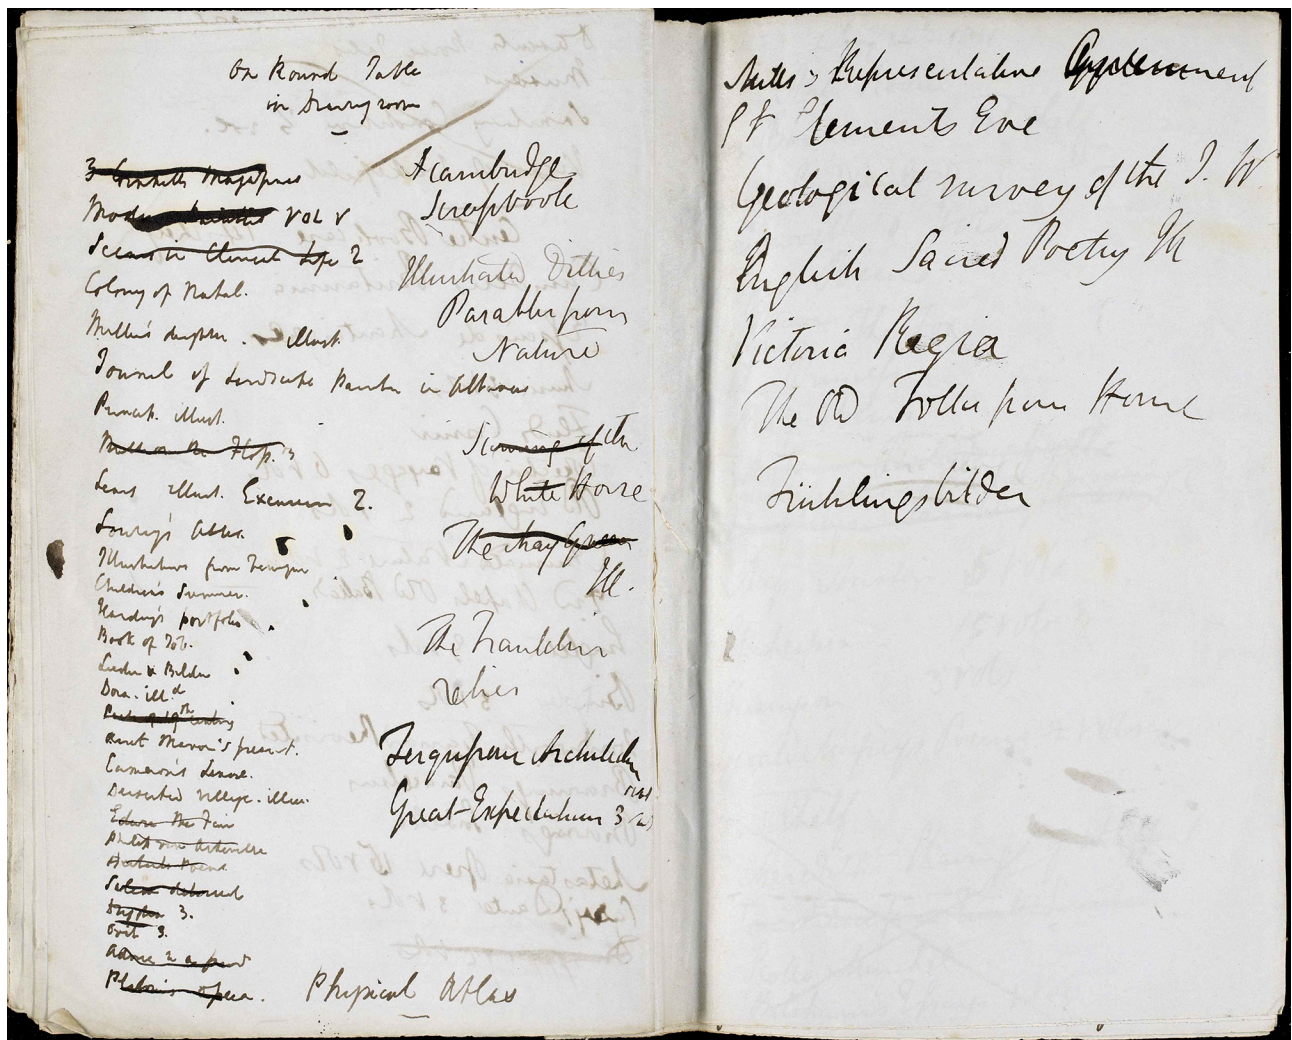 On Round Table
in Drawing room
3 Cornhill Magazines
Modern Painters Vol V
Scenes in Clerical Life 2
Colony of Natal.
Miller's daughter. illust.
Journal of Landscape Painter in Albania
Punch. illust.
Mill on the Floss. 3
Lears illust. Excursion 2.
Lowry's Atlas.
Illustrations from Tennyson
Children's Summer.
Harding's portfolio
Book of Job.
Lieder & Bilder
Dora. illd
Poets of 19th century
Aunt Mavor's present.
Cameron's Lenore.
Deserted Village. illus.
Edwin the Fair
Philip van Artevelde
Herbert's Poems
Salem delivered
Dryden 3.
Ovid 3.
Plato's opera.
Physical Atlas
A Cambridge
Scrapbook
Illustrated Ditties
Parables from
Nature
Scouring of the
White Horse
The May Queen
Ill.
The Franklin
relics
Fergusson Architecture
Great Expectations 3
Mills Representative Government
St Clements Eve
Geological survey of the I. W
English Sacred Poetry Ill
Victoria Regia
The Old Folks from Home
Frühlingsbilder